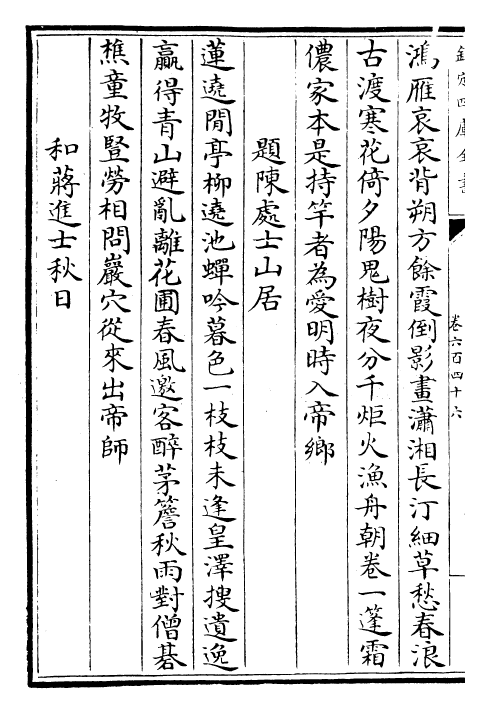 欽定四庫全書
卷六百四十六
鴻雁哀哀背朔方餘霞倒影畫瀟湘長汀細草愁春浪
古渡寒花倚夕陽鬼樹夜分千炬火漁舟朝卷一篷霜
儂家本是持竿者為愛明時入帝鄉
題陳處士山居
蓮遶閒亭柳遶池蟬吟暮色一枝枝未逢皇澤搜遺逸
贏得青山避亂離花圃春風邀客醉茅簷秋雨對僧碁
樵童牧豎勞相問巖穴從來出帝師
和蔣進士秋日